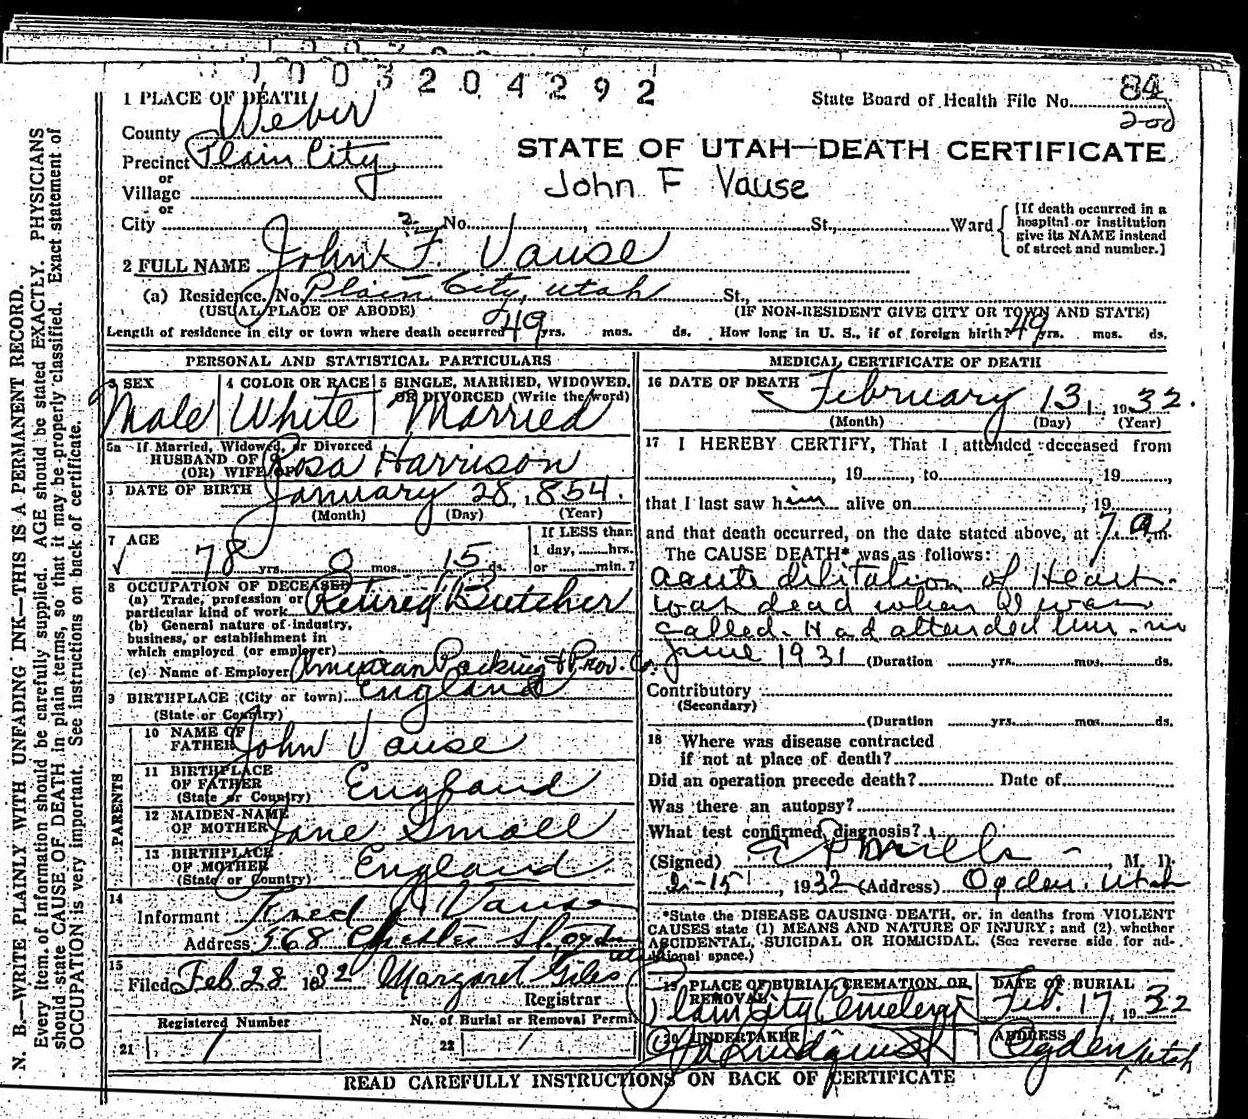 1003204292
1 PLACE OF DEATH
State Board of Health File No. 84
200
County Weber
Precinct Plain City
or
Village
or
City No. St., Ward
STATE OF UTAH—DEATH CERTIFICATE
John F Vause
[If death occurred in a
hospital or institution
give its NAME instead
of street and number.]
2 FULL NAME John F. Vause
(a) Residence. No. Plain City, Utah St.,
(USUAL PLACE OF ABODE) (IF NON-RESIDENT GIVE CITY OR TOWN AND STATE)
Length of residence in city or town where death occurred 49 yrs. mos. ds. How long in U. S., if of foreign birth? 49 yrs. mos. ds.
PERSONAL AND STATISTICAL PARTICULARS
3 SEX
Male
4 COLOR OR RACE
White
5 SINGLE, MARRIED, WIDOWED,
OR DIVORCED (Write the word)
Married
5a If Married, Widowed, or Divorced
HUSBAND OF
(OR) WIFE OF Rosa Harrison
DATE OF BIRTH January 28, 1854.
(Month) (Day) (Year)
7 AGE
78 yrs. 0 mos. 15 ds.
If LESS than
1 day, hrs.
or min.?
8 OCCUPATION OF DECEASED
(a) Trade, profession or
particular kind of work Retired Butcher
(b) General nature of industry,
business, or establishment in
which employed (or employer)
(c) Name of Employer American Packing & Prov. Co.
9 BIRTHPLACE (City or town) England
(State or Country)
PARENTS
10 NAME OF
FATHER John Vause
11 BIRTHPLACE
OF FATHER
(State or Country) England
12 MAIDEN NAME
OF MOTHER Jane Small
13 BIRTHPLACE
OF MOTHER
(State or Country) England
14
Informant Fred J. Vause
Address 568 Chester St. Ogden Utah
15
Filed Feb 28 1932 Margaret Giles
Registrar
Registered Number
21 1
No. of Burial or Removal Permit
22 1
MEDICAL CERTIFICATE OF DEATH
16 DATE OF DEATH February 13, 1932.
(Month) (Day) (Year)
17 I HEREBY CERTIFY, That I attended deceased from
, 19 , to , 19 ,
that I last saw him alive on , 19
and that death occurred, on the date stated above, at 7 a.m.
The CAUSE DEATH* was as follows:
acute dilitation of Heart.
was dead when I was
called. Had attended him in
June 1931 (Duration yrs. mos. ds.
Contributory
(Secondary)
(Duration yrs. mos. ds.
18 Where was disease contracted
if not at place of death?
Did an operation precede death? Date of
Was there an autopsy?
What test confirmed diagnosis?
(Signed) E P Mills, M. D.
2-15, 1932 (Address) Ogden, Utah
*State the DISEASE CAUSING DEATH, or, in deaths from VIOLENT
CAUSES state (1) MEANS AND NATURE OF INJURY; and (2) whether
ACCIDENTAL, SUICIDAL OR HOMICIDAL. (See reverse side for ad-
ditional space.)
19 PLACE OF BURIAL, CREMATION, OR
REMOVAL
Plain City Cemetery
DATE OF BURIAL
Feb. 17, 1932
20 UNDERTAKER
ADDRESS
Ogden Utah
READ CAREFULLY INSTRUCTIONS ON BACK OF CERTIFICATE
N. B.—WRITE PLAINLY WITH UNFADING INK—THIS IS A PERMANENT RECORD.
Every item of information should be carefully supplied. AGE should be stated EXACTLY. PHYSICIANS
should state CAUSE OF DEATH in plain terms, so that it may be properly classified. Exact statement of
OCCUPATION is very important. See instructions on back of certificate.